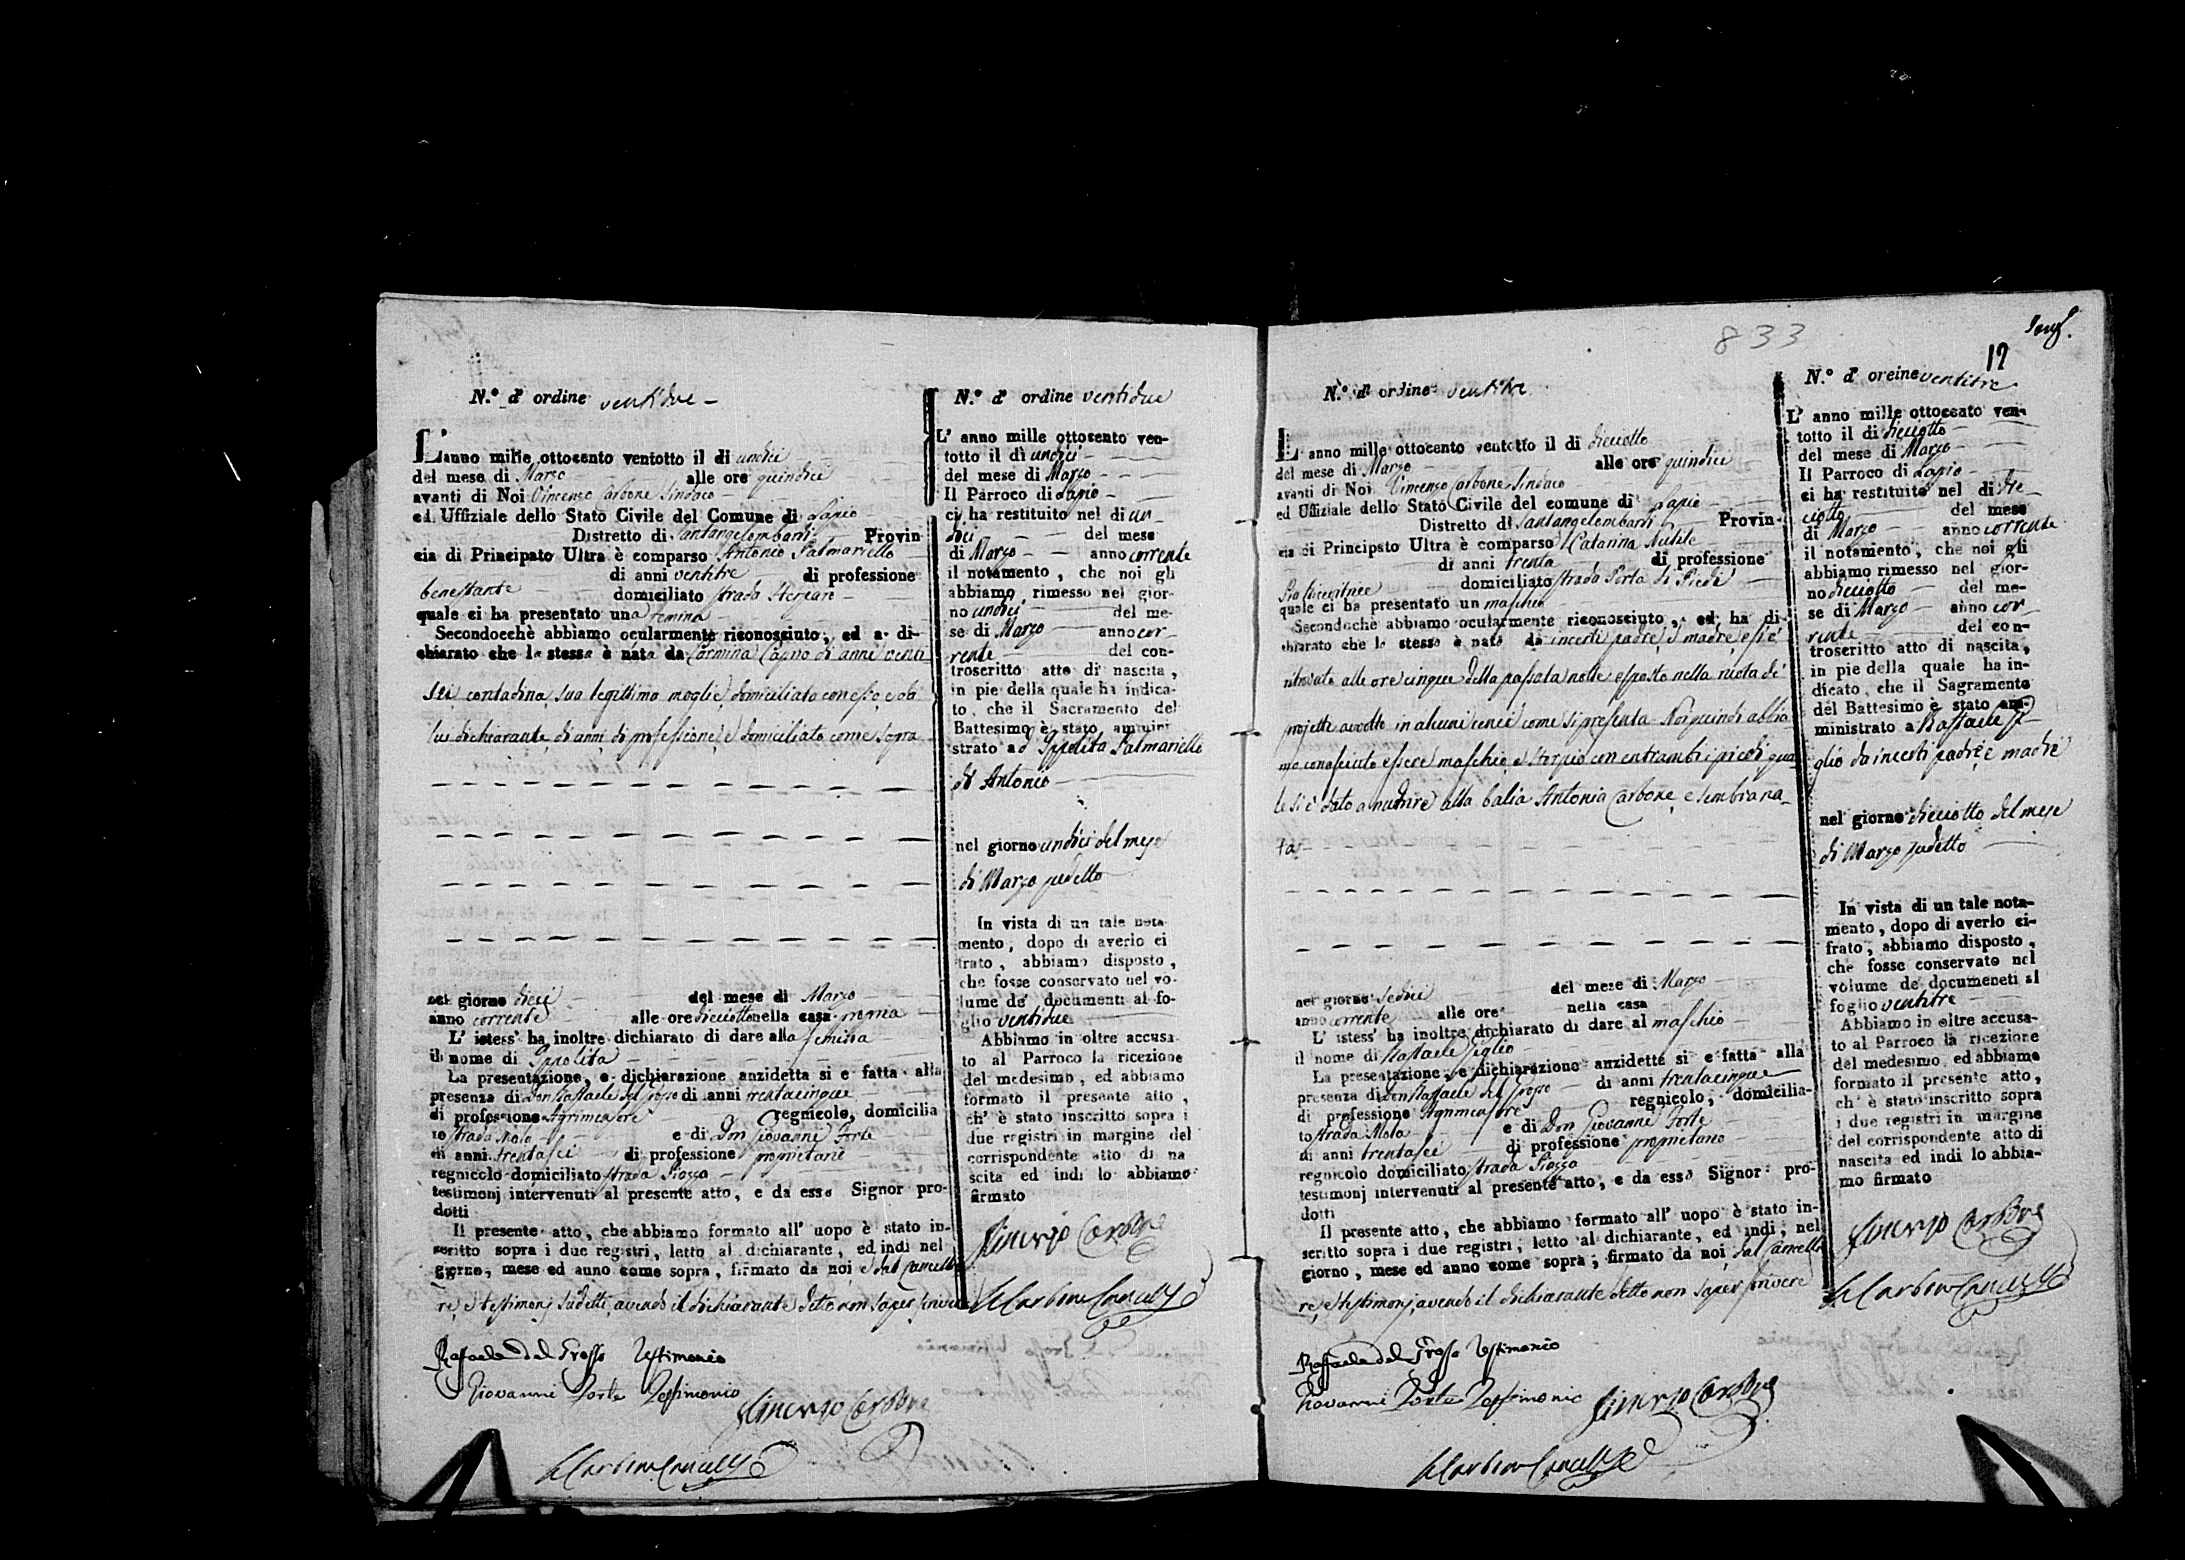 N.º d' ordine ventidue
L'anno mille ottocento ventotto il di undici
del mese di Marzo alle ore quindici
avanti di Noi Vincenzo Carbone Sindaco
ed Uffiziale dello Stato Civile del Comune di Lapio
Distretto di Santangelombardi Provin
cia di Principato Ultra è comparso Antonio Palmariello
di anni ventitre di professione
benestante domiciliato strada
quale ci ha presentato una femina
Secondocchè abbiamo ocularmente riconosciuto, ed a di-
chiarato che la stessa è nata da Carmina di anni venti
sei contadina, sua legittima moglie, domiciliata con esso, e da
lui dichiarante, di anni, di professione, e domiciliato come sopra
nel giorno dieci del mese di Marzo
anno corrente alle ore dieciotto nella casa propria
L' istess' ha inoltre dichiarato di dare alla femina
il nome di Ippolita
La presentazione, e dichiarazione anzidetta si e fatta alla
presenza di Don Raffaele del Grosso di anni trentacinque
di professione Agrimensore regnicolo, domicilia
to strada Mola e di Don Giovanni Forte
di anni trentasei di professione proprietario
regnicolo domiciliato strada Piazza
testimonj intervenuti al presente atto, e da esso Signor pro-
dotti
Il presente atto, che abbiamo formato all' uopo è stato in-
scritto sopra i due registri, letto al dichiarante, ed indi nel
giorno, mese ed anno come sopra, firmato da noi, e dal Cancellie
re, e testimonj sudetti, avendo il dichiarante detto non saper scrivere
Raffaele del Grosso Testimonio
Giovanni Forte Testimonio Vincenzo Carbone
Carbone Cancelle
N.º d' ordine ventidue
L' anno mille ottocento ven-
totto il di undici
del mese di Marzo
Il Parroco di Lapio
ci ha restituito nel di un
dici del mese
di Marzo anno corrente
il notamento, che noi gli
abbiamo rimesso nel gior-
no undici del me-
se di Marzo anno cor-
rente del con-
troscritto atto di nascita,
in pie della quale ha indica-
to, che il Sacramento del
Battesimo è stato ammini
strato ad Ippolita Palmariello
di Antonio
nel giorno undici del mese
di Marzo sudetto
In vista di un tale nota
mento, dopo di averlo ci
frato, abbiamo disposto,
che fosse conservato nel vo-
lume de' documenti al fo-
glio ventidue
Abbiamo in oltre accusa-
to al Parroco la ricezione
del medesimo, ed abbiamo
formato il presente atto,
ch' è stato inscritto sopra i
due registri in margine del
corrispondente atto di na
scita ed indi lo abbiamo
firmato
Vincenzo Carbone
Carbone Cancelle
833
19
N.º d' ordine ventitre
L' anno mille ottocento ventotto il di dieciotto
del mese di Marzo alle ore quindici
avanti di Noi Vincenzo Carbone Sindaco
ed Uffiziale dello Stato Civile del comune di Lapio
Distretto di Santangelombardi Provin-
cia di Principato Ultra è comparso Catarina Nutile
di anni trenta di professione
Pia ricevitrice domiciliato strada Porta di Piedi
quale ci ha presentato un maschio
Secondochè abbiamo ocularmente riconosciuto, ed ha di-
chiarato che lo stesso è nato di incerti padre, e madre, e si è
ritrovato alle ore cinque della passata notte esposto nella ruota de'
projetti avvolto in alcuni cenci come si presenta. Noi quindi abbia
mo conosciuto essere maschio, e storpio con entrambi i piedi, qua
le si è dato a nudrire alla balia Antonia Carbone, e sembra na
to
nel giorno sedici del mese di Marzo
anno corrente alle ore nella casa
L' istess' ha inoltre dichiarato di dare al maschio
il nome di Raffaele Giglio
La presentazione, e dichiarazione anzidetta si e fatta alla
presenza di Don Raffaele del Grosso di anni trentacinque
di professione Agrimensore regnicolo, domicilia-
to strada Mola e di Don Giovanni Forte
di anni trentasei di professione proprietario
regnicolo domiciliato strada Piazza
testimonj intervenuti al presente atto, e da esso Signor pro-
dotti
Il presente atto, che abbiamo formato all' uopo è stato in-
scritto sopra i due registri, letto al dichiarante, ed indi, nel
giorno, mese ed anno come sopra, firmato da noi, dal Cancellie
re, e testimonj, avendo il dichiarante detto non saper scrivere
Raffaele del Grosso Testimonio
Giovanni Forte Testimonio Vincenzo Carbone
Carbone Cancelle
N.º d' oreine ventitre
L' anno mille ottoceato ven-
totto il di dieciotto
del mese di Marzo
Il Parroco di Lapio
ci ha restituito nel di die-
ciotto del mese
di Marzo anno corrente
il notamento, che noi gli
abbiamo rimesso nel gior-
no dieciotto del me-
se di Marzo anno cor-
rente del con-
troscritto atto di nascita,
in pie della quale ha in-
dicato, che il Sagramento
del Battesimo è stato am-
ministrato a Raffaele Gi
glio da incerti padre, e madre
nel giorno dieciotto del mese
di Marzo sudetto
In vista di un tale nota-
mento, dopo di averlo ci-
frato, abbiamo disposto,
che fosse conservato nel
volume de' documeneti al
foglio ventitre
Abbiamo in oltre accusa-
to al Parroco la ricezione
del medesimo, ed abbiamo
formato il presente atto,
ch' è stato inscritto sopra
i due registri in margine
del corrispondente atto di
nascita ed indi lo abbia-
mo firmato
Vincenzo Carbone
Carbone Cancelle